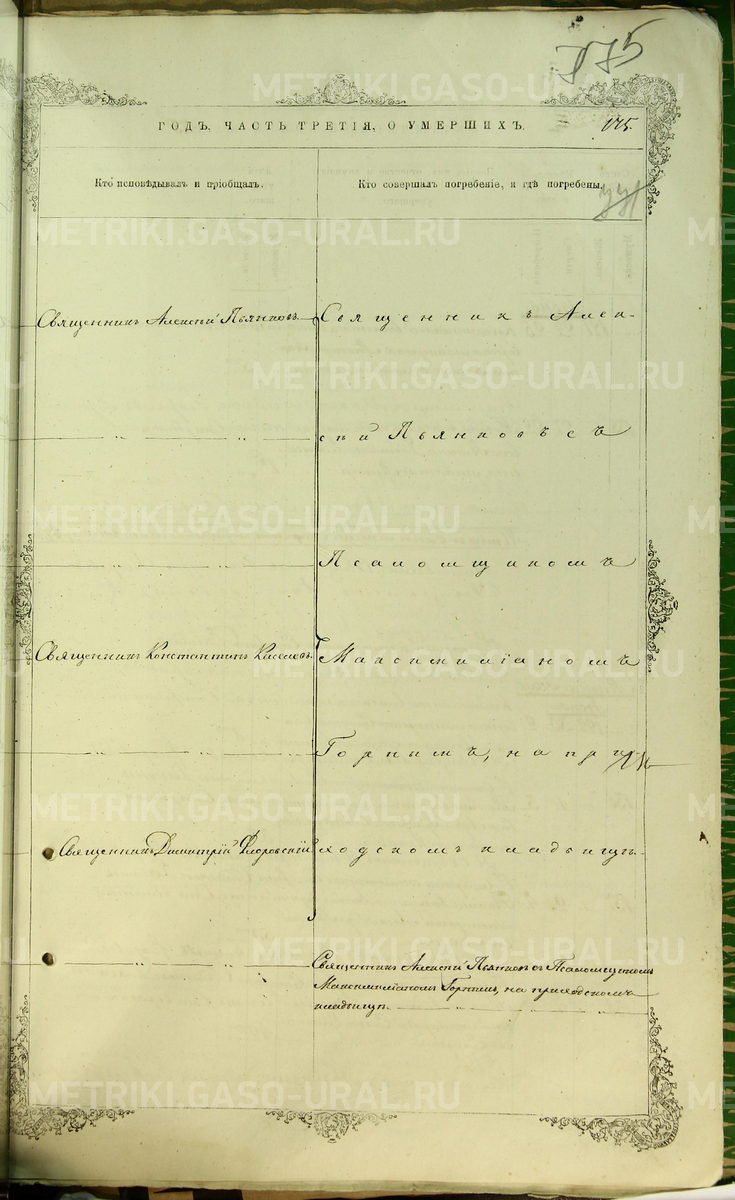 775
ГОДЪ, ЧАСТЬ ТРЕТІЯ, О УМЕРШИХЪ.
175.
Кто исповѣдывалъ и пріобщалъ.
Кто совершалъ погребеніе, и гдѣ погребены.
Священникъ Алексій Пьянковъ.
Священникъ Алек-
" "
сій Пьянковъ съ
" "
Псаломщикомъ
Священникъ Константинъ Киселевъ.
Максимиліаномъ
" "
Горнымъ, на при
Священникъ Димитрій Флоровскій
ходскомъ кладбищѣ.
" "
Священникъ Алексій Пьянковъ съ Псаломщикомъ
Максимиліаномъ Горнымъ, на приходскомъ
кладбищѣ.
METRIKI.GASO-URAL.RU